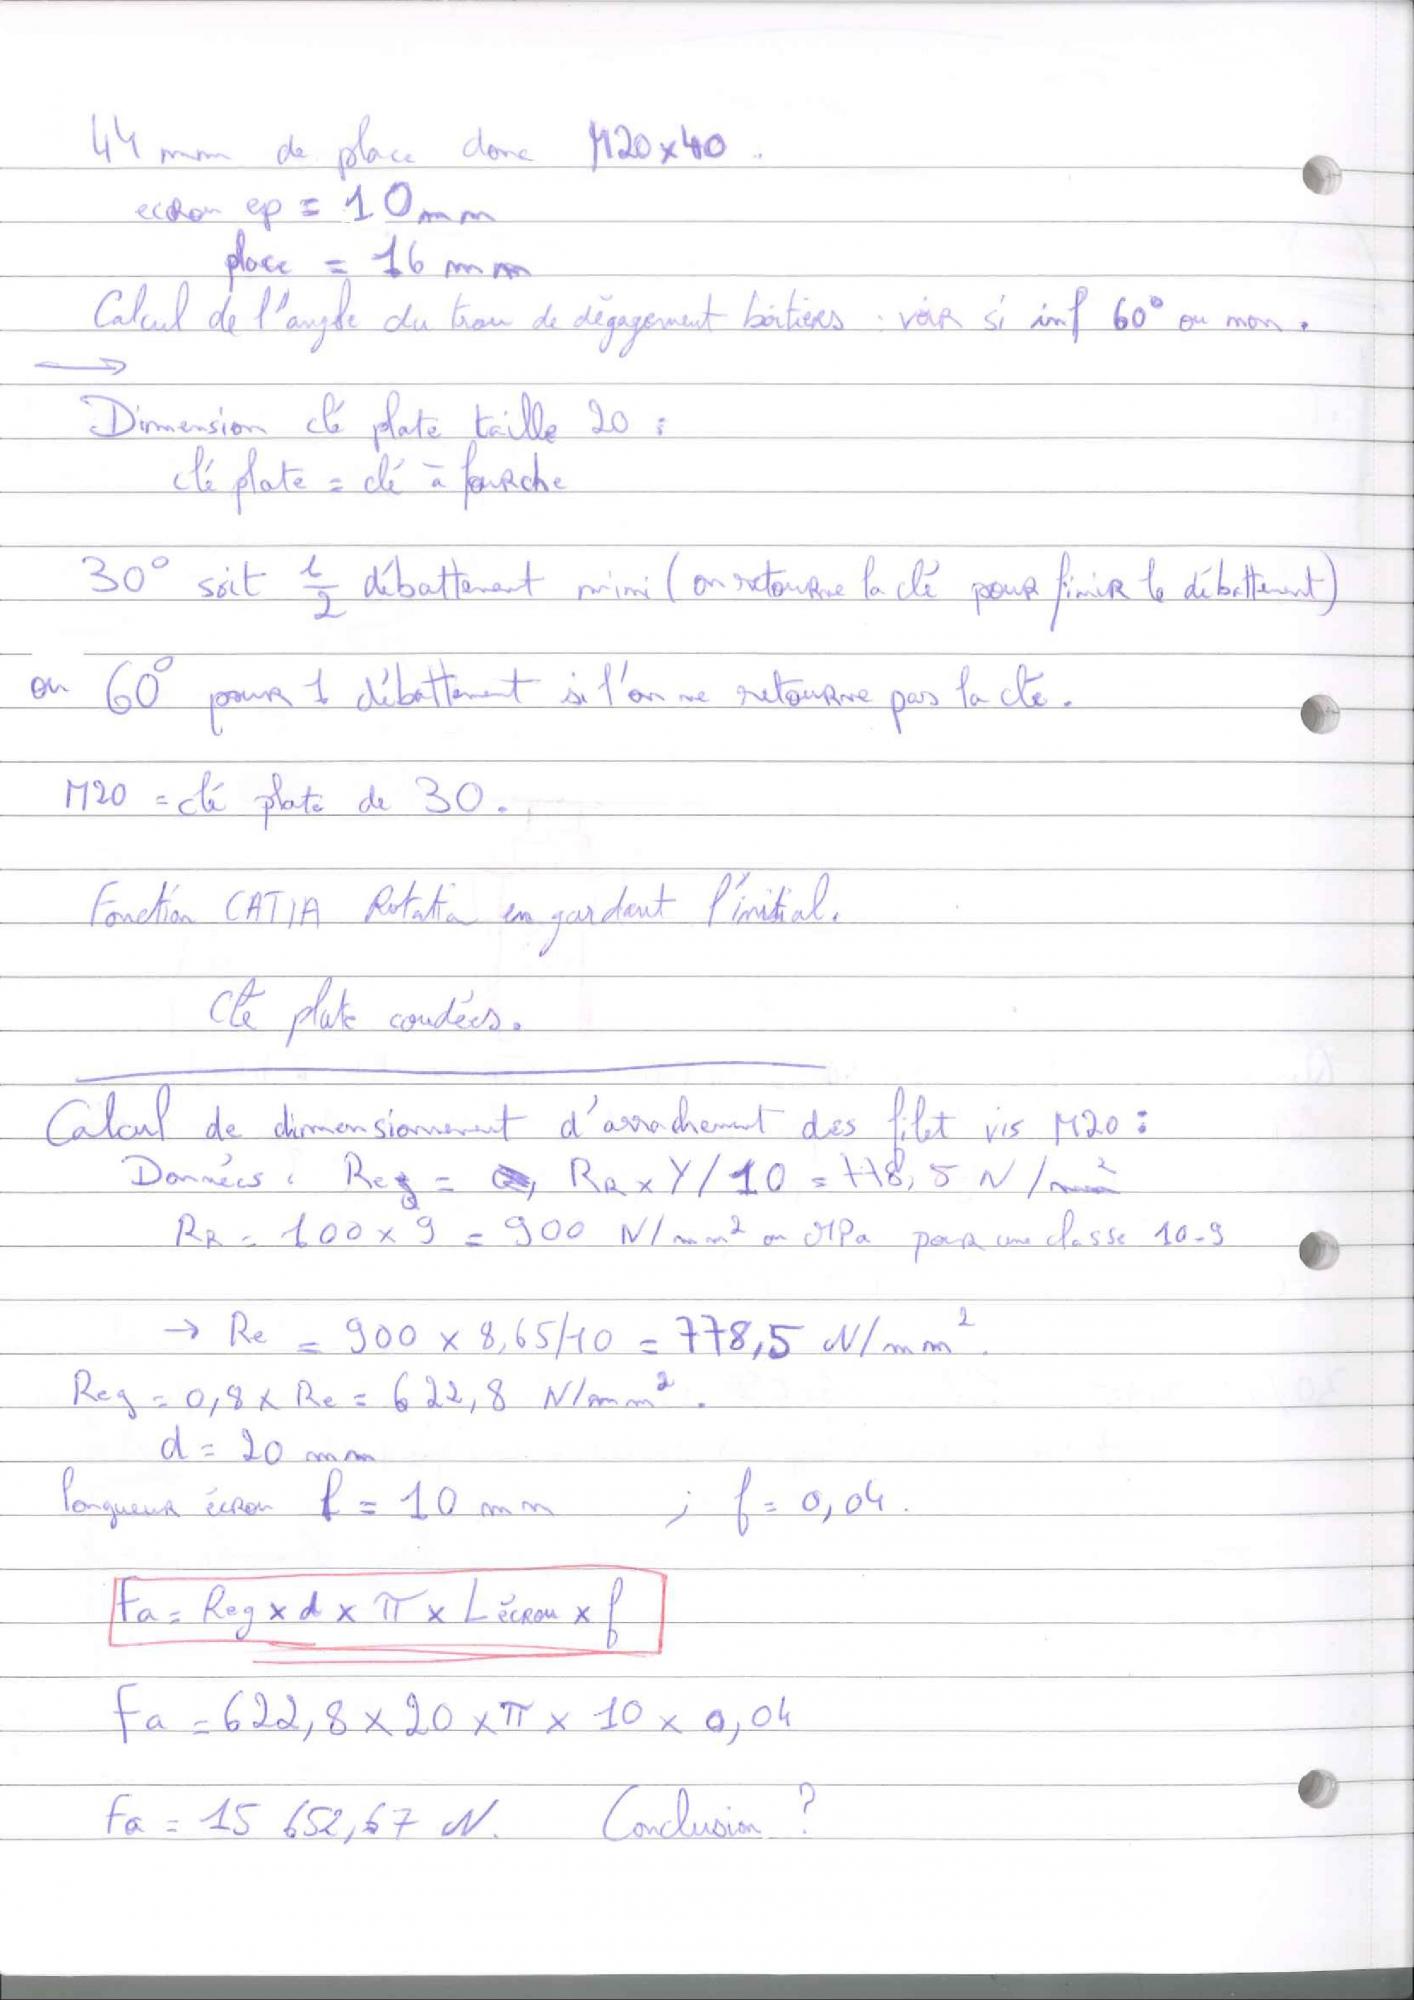 44 mm de place donc M20x40.
ecrou ep = 10 mm
place = 16 mm
Calcul de l'angle du trou de dégagement boîtiers : voir si inf 60° ou non.
→
Dimension clé plate taille 20 :
clé plate = clé à fourche
30° soit 1/2 débattement mini (on retourne la clé pour finir le débattement)
ou 60° pour 1 débattement si l'on ne retourne pas la clé.
M20 = clé plate de 30.
Fonction CATIA Rotation en gardant l'initial.
Clé plate coudées.
Calcul de dimensionnement d'arrachement des filet vis M20 :
Données : Reg = RR x Y/10 = 778,5 N/mm²
RR = 100 x 9 = 900 N/mm² ou MPa pour une classe 10-9
→ Re = 900 x 8,65/10 = 778,5 N/mm².
Reg = 0,8 x Re = 622,8 N/mm².
d = 20 mm
longueur écrou l = 10 mm ; f = 0,04.
Fa = Reg x d x π x L écrou x f
Fa = 622,8 x 20 x π x 10 x 0,04
Fa = 15 652,67 N. Conclusion ?